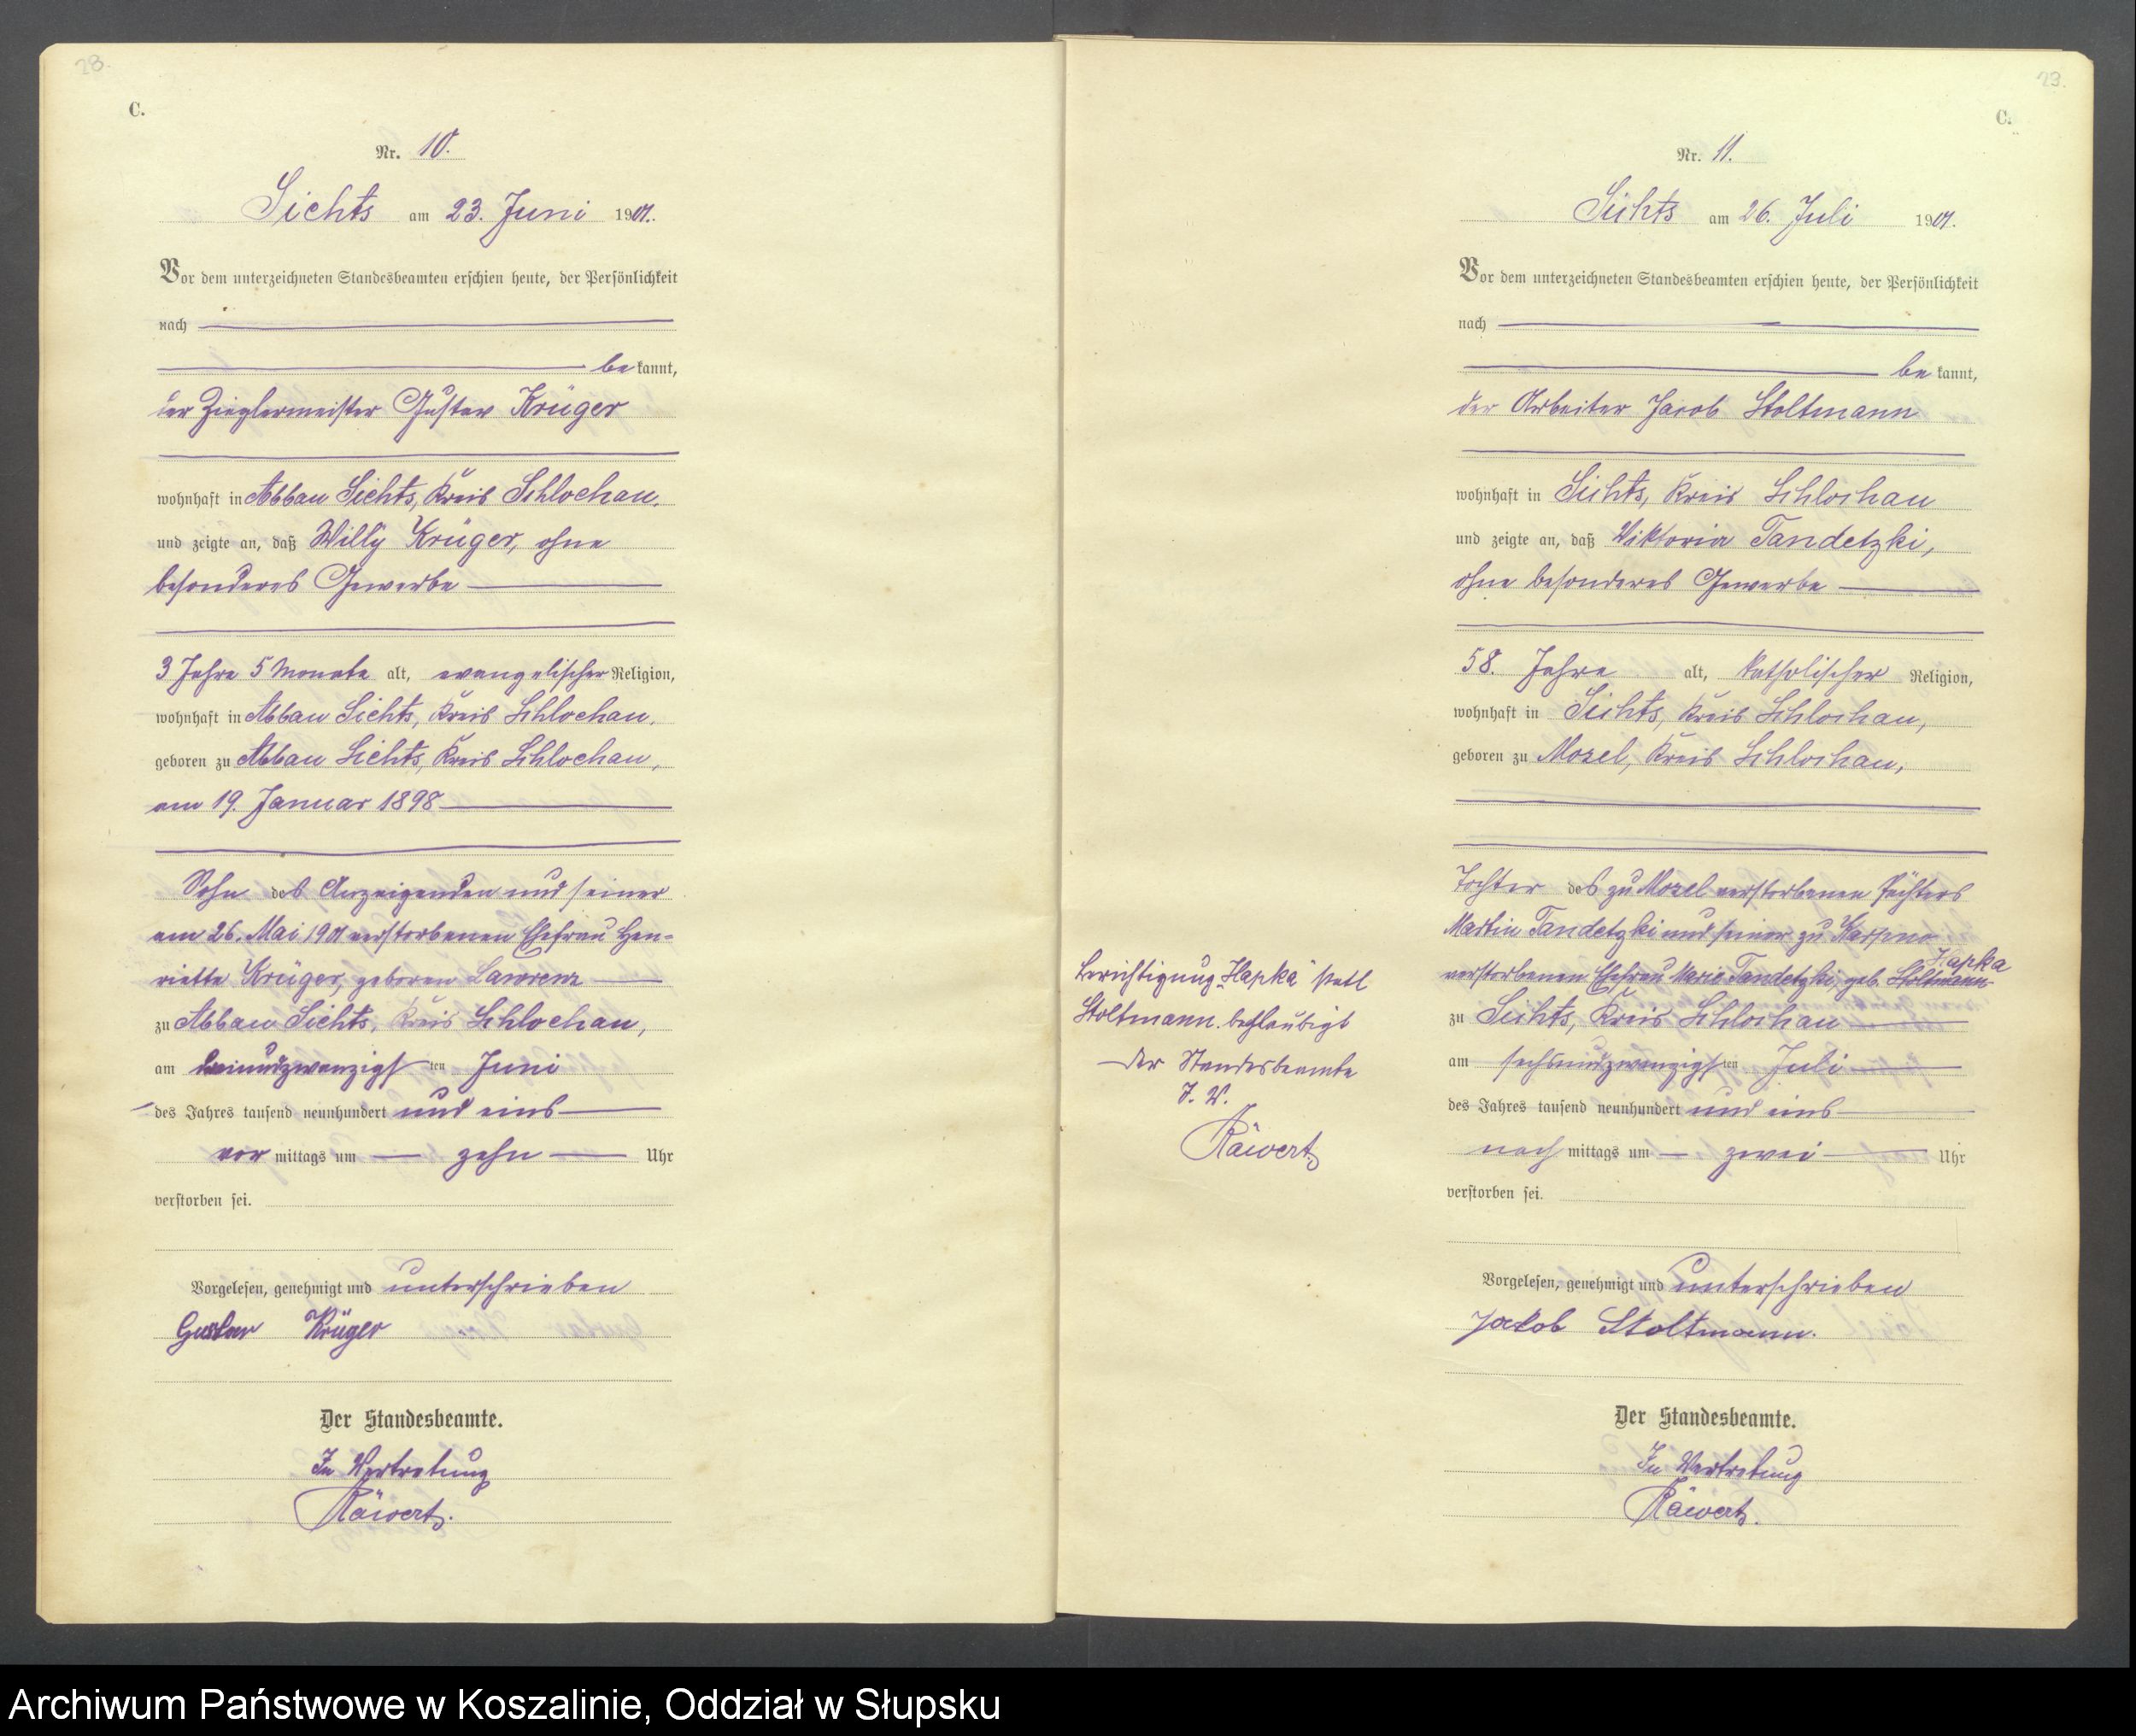 28.
C.
Nr. 10.
Sichts am 23. Juni 1901.
Vor dem unterzeichneten Standesbeamten erschien heute, der Persönlichkeit
nach
be kannt,
der Zieglermeister Gustav Krüger
wohnhaft in Abbau Sichts, Kreis Schlochau,
und zeigte an, daß Willy Krüger, ohne
besonderes Gewerbe
3 Jahre 5 Monate alt, evangelischer Religion,
wohnhaft in Abbau Sichts, Kreis Schlochau,
geboren zu Abbau Sichts, Kreis Schlochau,
am 19. Januar 1898
Sohn des Anzeigenden und seiner
am 26. Mai 1901 verstorbenen Ehefrau Hen-
riette Krüger, geboren Lawrenz
zu Abbau Sichts, Kreis Schlochau,
am dreiundzwanzigsten Juni
des Jahres tausend neunhundert und eins
vor mittags um zehn Uhr
verstorben sei.
Vorgelesen, genehmigt und unterschrieben
Gustav Krüger
Der Standesbeamte.
In Vertretung
Räwert.
23.
C.
Nr. 11.
Sichts am 26. Juli 1901.
Vor dem unterzeichneten Standesbeamten erschien heute, der Persönlichkeit
nach
be kannt,
der Arbeiter Jacob Stoltmann
wohnhaft in Sichts, Kreis Schlochau
und zeigte an, daß Viktoria Tandetzki,
ohne besonderes Gewerbe
58. Jahre alt, katholischer Religion,
wohnhaft in Sichts, Kreis Schlochau,
geboren zu Mosel, Kreis Schlochau,
Tochter des zu Mosel verstorbenen Pächters
Martin Tandetzki und seiner zu
Hapka
verstorbenen Ehefrau Marie Tandetzki, geb. Stoltmann
zu Sichts, Kreis Schlochau
am sechsundzwanzigsten Juli
des Jahres tausend neunhundert und eins
nach mittags um zwei Uhr
verstorben sei.
Vorgelesen, genehmigt und unterschrieben
Jakob Stoltmann.
Der Standesbeamte.
In Vertretung
Räwert.
Berichtigung „Hapka" statt
Stoltmann beglaubigt
der Standesbeamte
J. V.
Räwert.
Archiwum Państwowe w Koszalinie, Oddział w Słupsku